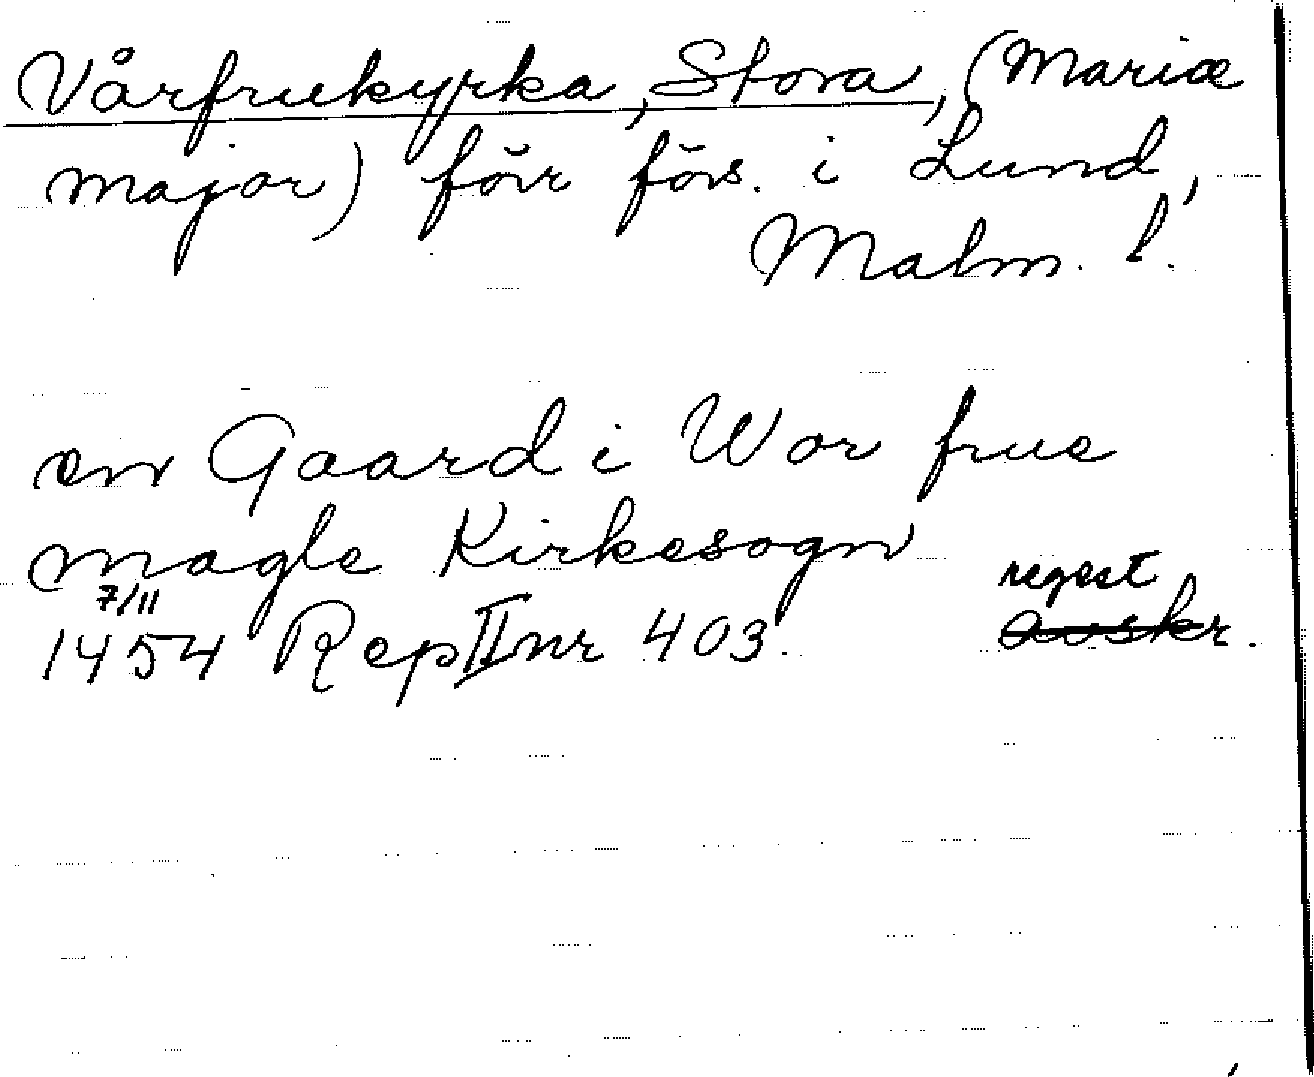 Vårfrukyrka, Stora, (Mariæ
major) förr förs. i Lund,
Malm. l.
en Gaard i Wor frue
magle Kirkesogn
7/11 regest
1454 Rep II nr 403. avskr.